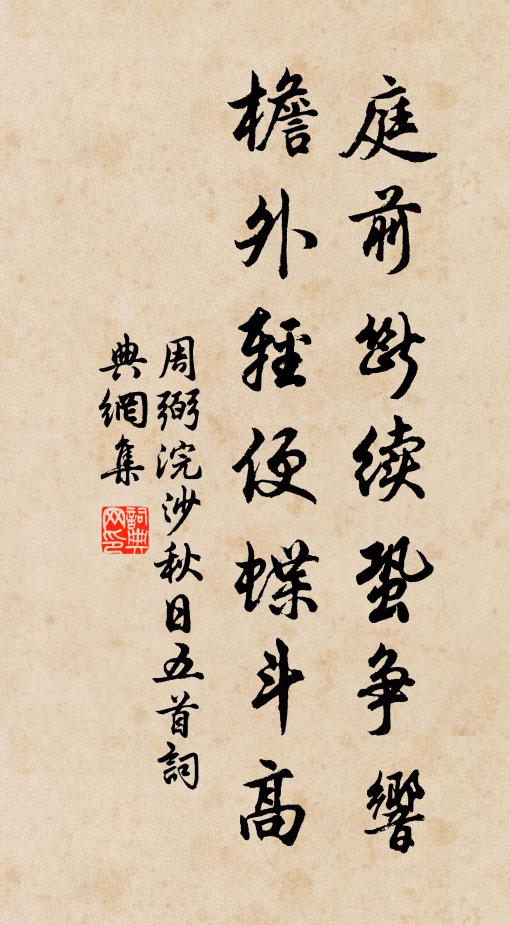 庭前斷续蛩争響
檐外輕便蝶斗高
周弼浣沙秋日五首詞
典網集
詞典网印